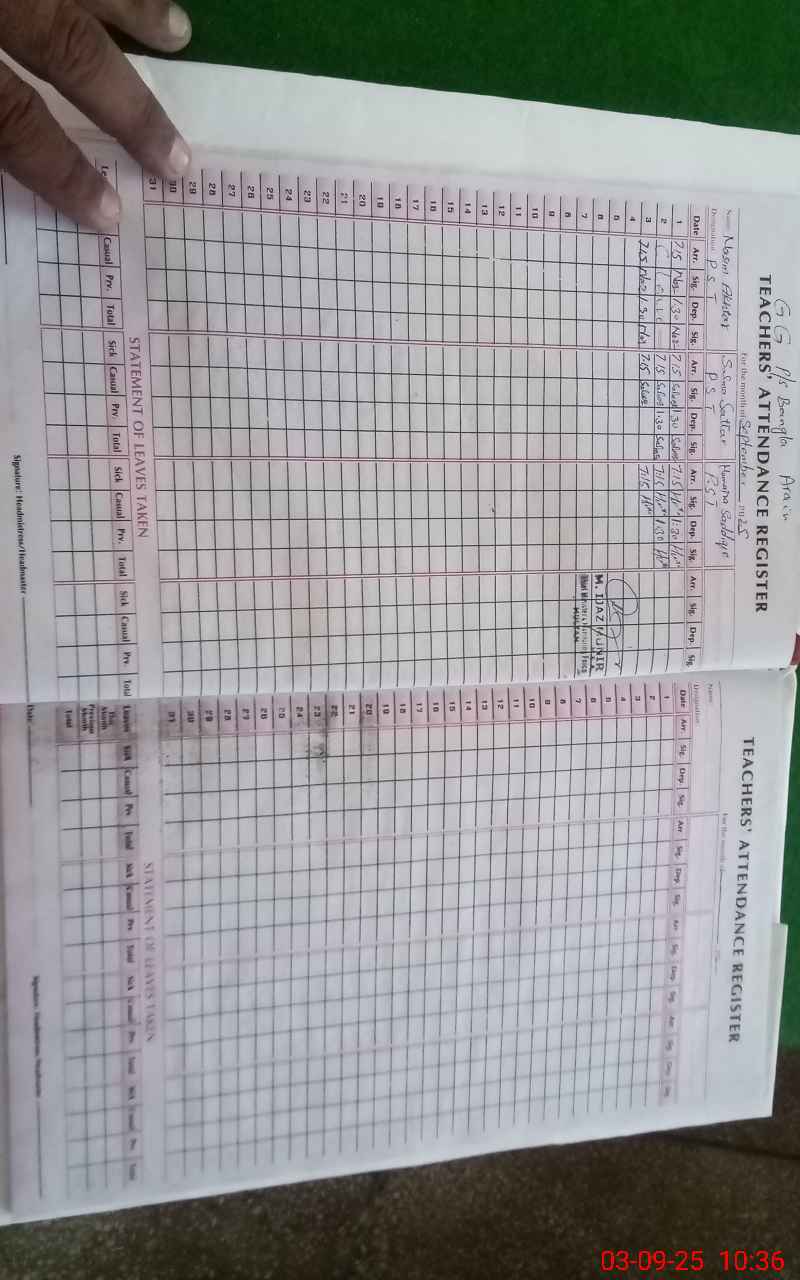 G G P/s Bangla Arain
TEACHERS' ATTENDANCE REGISTER
For the month of September 2025
Name Nasim Akhtar Salma Sattar Humaira Saddique
Designation P S T P S T P.S.T
Date Arr. Sig. Dep. Sig. Arr. Sig. Dep. Sig. Arr. Sig. Dep. Sig. Arr. Sig. Dep. Sig.
1 7.15 1.30 7.15 Salma 1.30 Salma 7.15 1.30
2 C Leave 7.15 Salma 1.30 Salma 7.15 1.30
3 7.15 1.30 7.15 Salma 7.15
4
5
6
7
8
9
10
11
12
13
14
15
16
17
18
19
20
21
22
23
24
25
26
27
28
29
30
31
M. IJAZ MUNIR
MULTAN
STATEMENT OF LEAVES TAKEN
Casual Prv. Total Sick Casual Prv. Total Sick Casual Prv. Total Sick Casual Prv. Total
Signature: Headmistress/Headmaster
TEACHERS' ATTENDANCE REGISTER
For the month of
Name
Designation
Date Arr. Sig. Dep. Sig. Arr. Sig. Dep. Sig. Arr. Sig. Dep. Sig. Arr. Sig. Dep. Sig.
1
2
3
4
5
6
7
8
9
10
11
12
13
14
15
16
17
18
19
20
21
22
23
24
25
26
27
28
29
30
31
STATEMENT OF LEAVES TAKEN
Leaves Sick Casual Prv. Total Sick Casual Prv. Total Sick Casual Prv. Total Sick Casual Prv. Total
This Month
Previous Month
Total
Date
Signature: Headmistress/Headmaster
03-09-25 10:36